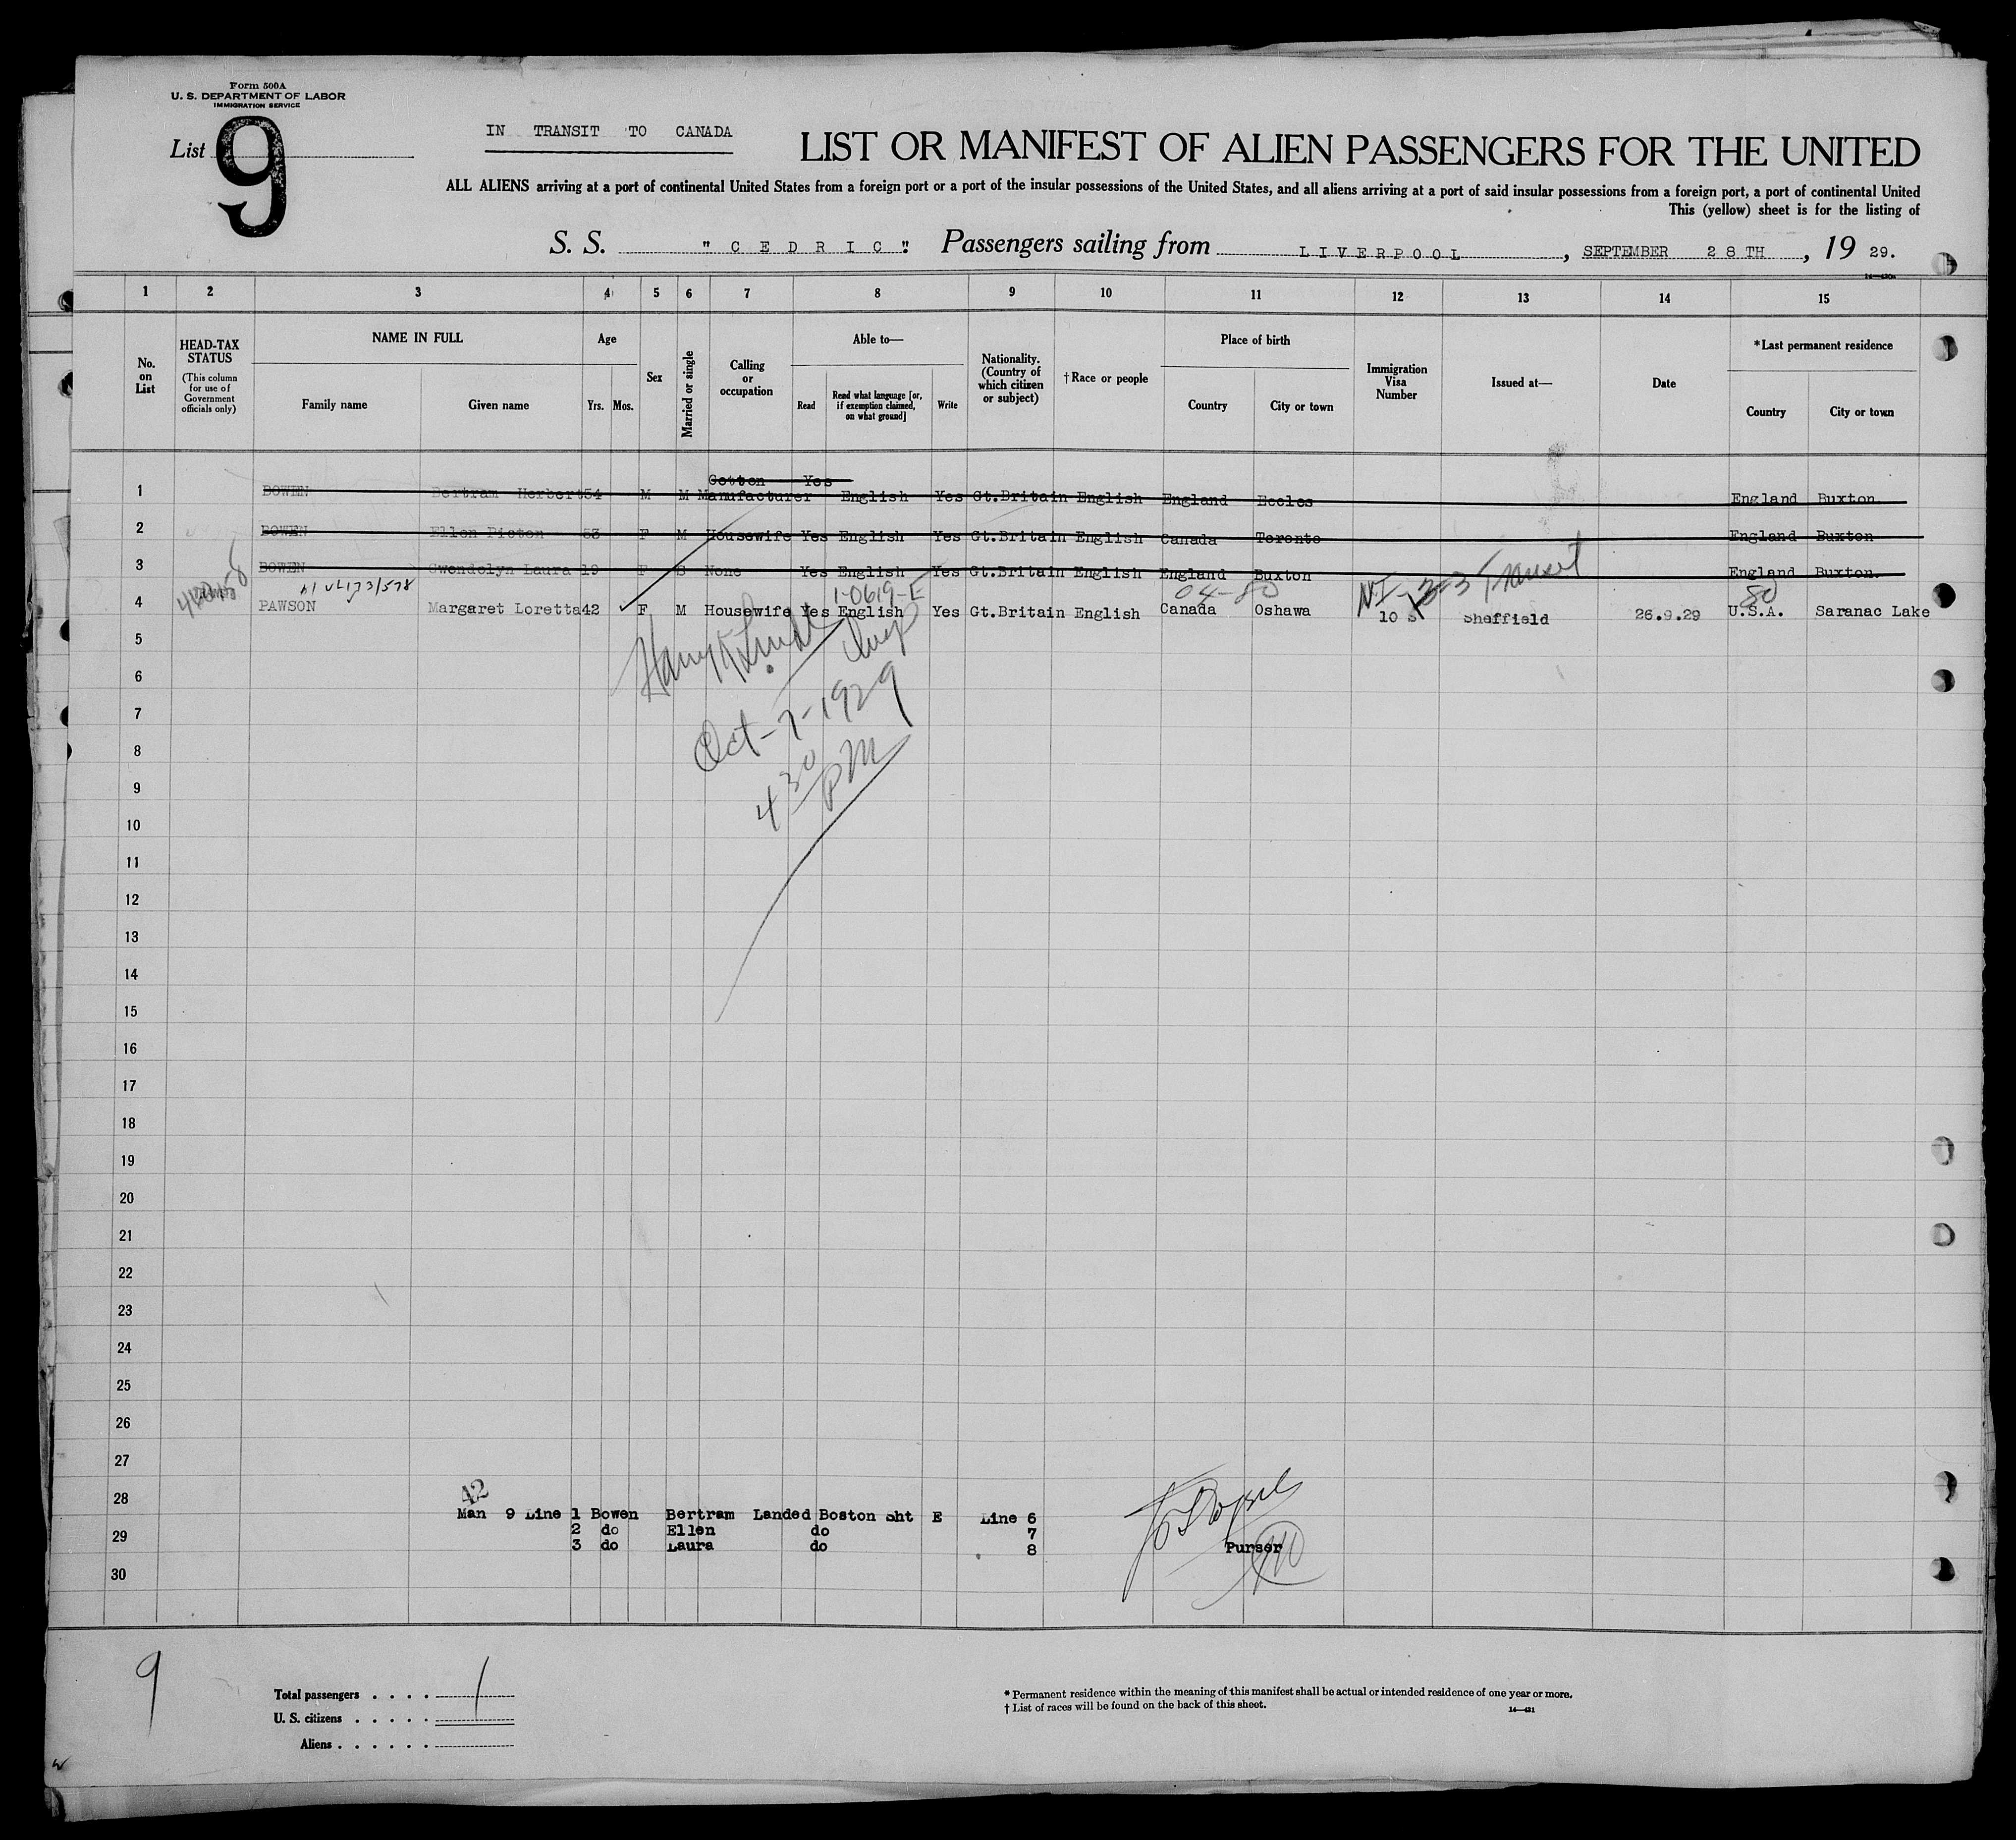 Form 500A
U. S. DEPARTMENT OF LABOR
IMMIGRATION SERVICE
List 9
IN TRANSIT TO CANADA
LIST OR MANIFEST OF ALIEN PASSENGERS FOR THE UNITED
ALL ALIENS arriving at a port of continental United States from a foreign port or a port of the insular possessions of the United States, and all aliens arriving at a port of said insular possessions from a foreign port, a port of continental United
This (yellow) sheet is for the listing of
S. S. "CEDRIC". Passengers sailing from LIVERPOOL, SEPTEMBER 28TH, 1929.
1 2 3 4 5 6 7 8 9 10 11 12 13 14 15
No. on List
HEAD-TAX STATUS
(This column for use of Government officials only)
NAME IN FULL
Family name
Given name
Age
Yrs. Mos.
Sex
Married or single
Calling or occupation
Able to—
Read
Read what language [or, if exemption claimed, on what ground]
Write
Nationality. (Country of which citizen or subject)
†Race or people
Place of birth
Country
City or town
Immigration Visa Number
Issued at—
Date
*Last permanent residence
Country
City or town
1 BOWEN Bertram Herbert 54 M M Cotton Manufacturer Yes English Yes Gt.Britain English England Eccles England Buxton
2 BOWEN Ellen Picton 53 F M Housewife Yes English Yes Gt.Britain English Canada Toronto England Buxton
3 BOWEN Gwendolyn Laura 19 F S None Yes English Yes Gt.Britain English England Buxton England Buxton.
1-0619-E 04-80 Transit 80
4 PAWSON Margaret Loretta 42 F M Housewife Yes English Yes Gt.Britain English Canada Oshawa 10 Sheffield 26.9.29 U.S.A. Saranac Lake
5
6
Insp
7
Oct-7-1929
8
9
4 30 PM
10
11
12
13
14
15
16
17
18
19
20
21
22
23
24
25
26
27
28
42
Man 9 Line 1 Bowen Bertram Landed Boston sht E Line 6
29
2 do Ellen do 7
3 do Laura do 8
Purser
30
9
Total passengers . . . . 1
U. S. citizens . . . . .
Aliens . . . . . .
* Permanent residence within the meaning of this manifest shall be actual or intended residence of one year or more.
† List of races will be found on the back of this sheet.
14—431